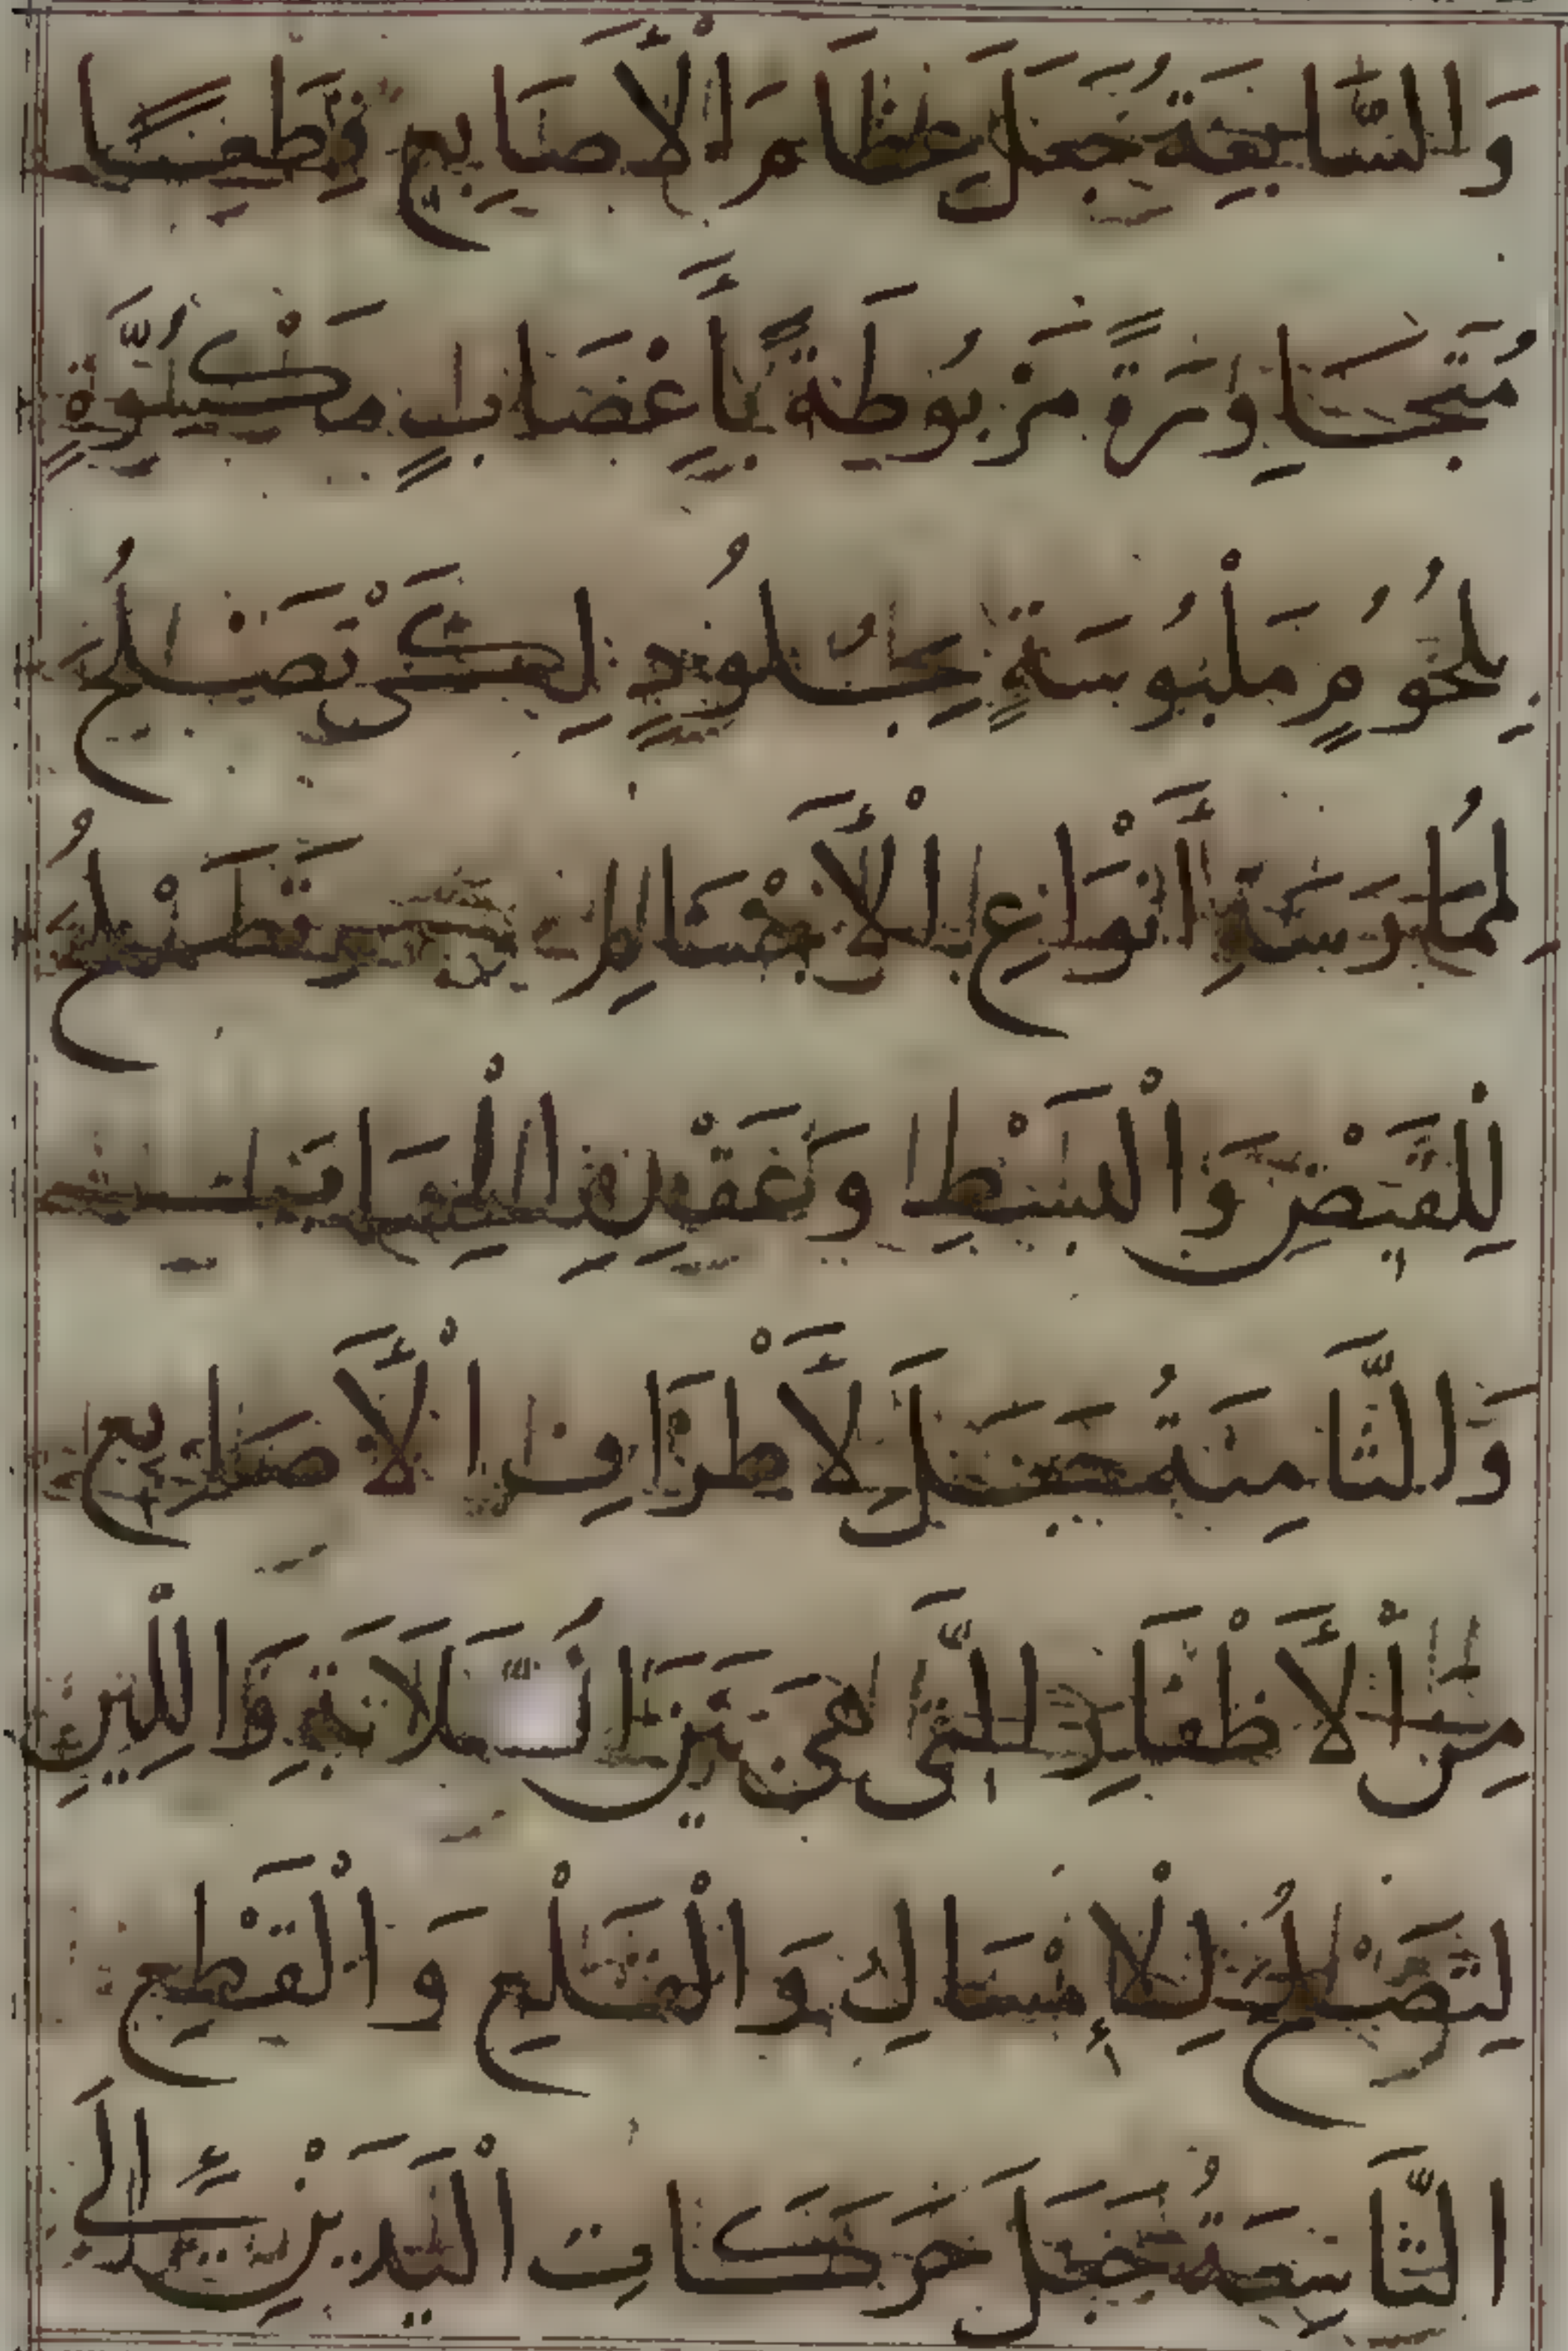 وَالسَّابِعَةُ جَعَلَ عِظَامَ الْأَصَابِعِ قِطَعًا
مُتَجَاوِرَةً مَرْبُوطَةً بِأَعْصَابٍ مَكْسُوَّةٍ
بِلُحُومٍ مَلْبُوسَةٍ بِجُلُودٍ لِكَيْ تَصْلُحَ
لِمُمَارَسَةِ أَنْوَاعِ الْأَجْسَامِ تَصْلُحُ
لِلْقَبْضِ وَالْبَسْطِ وَعَقْدِ
وَالثَّامِنَةُ جَعَلَ لِأَطْرَافِ الْأَصَابِعِ
مِنَ الْأَظْفَارِ الَّتِي هِيَ بَيْنَ الصَّلَابَةِ وَاللِّينِ
لِتَصْلُحَ لِلْإِمْسَاكِ وَالْقَلْعِ وَالْقَطْعِ
التَّاسِعَةُ جَعَلَ حَرَكَاتِ الْيَدَيْنِ إِلَى